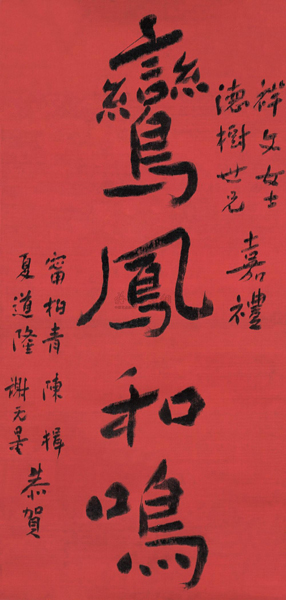 祥文女士
德樹世兄 嘉禮
鸞鳳和鳴
甯柏青 陳楫
夏道隆 謝元量 恭賀